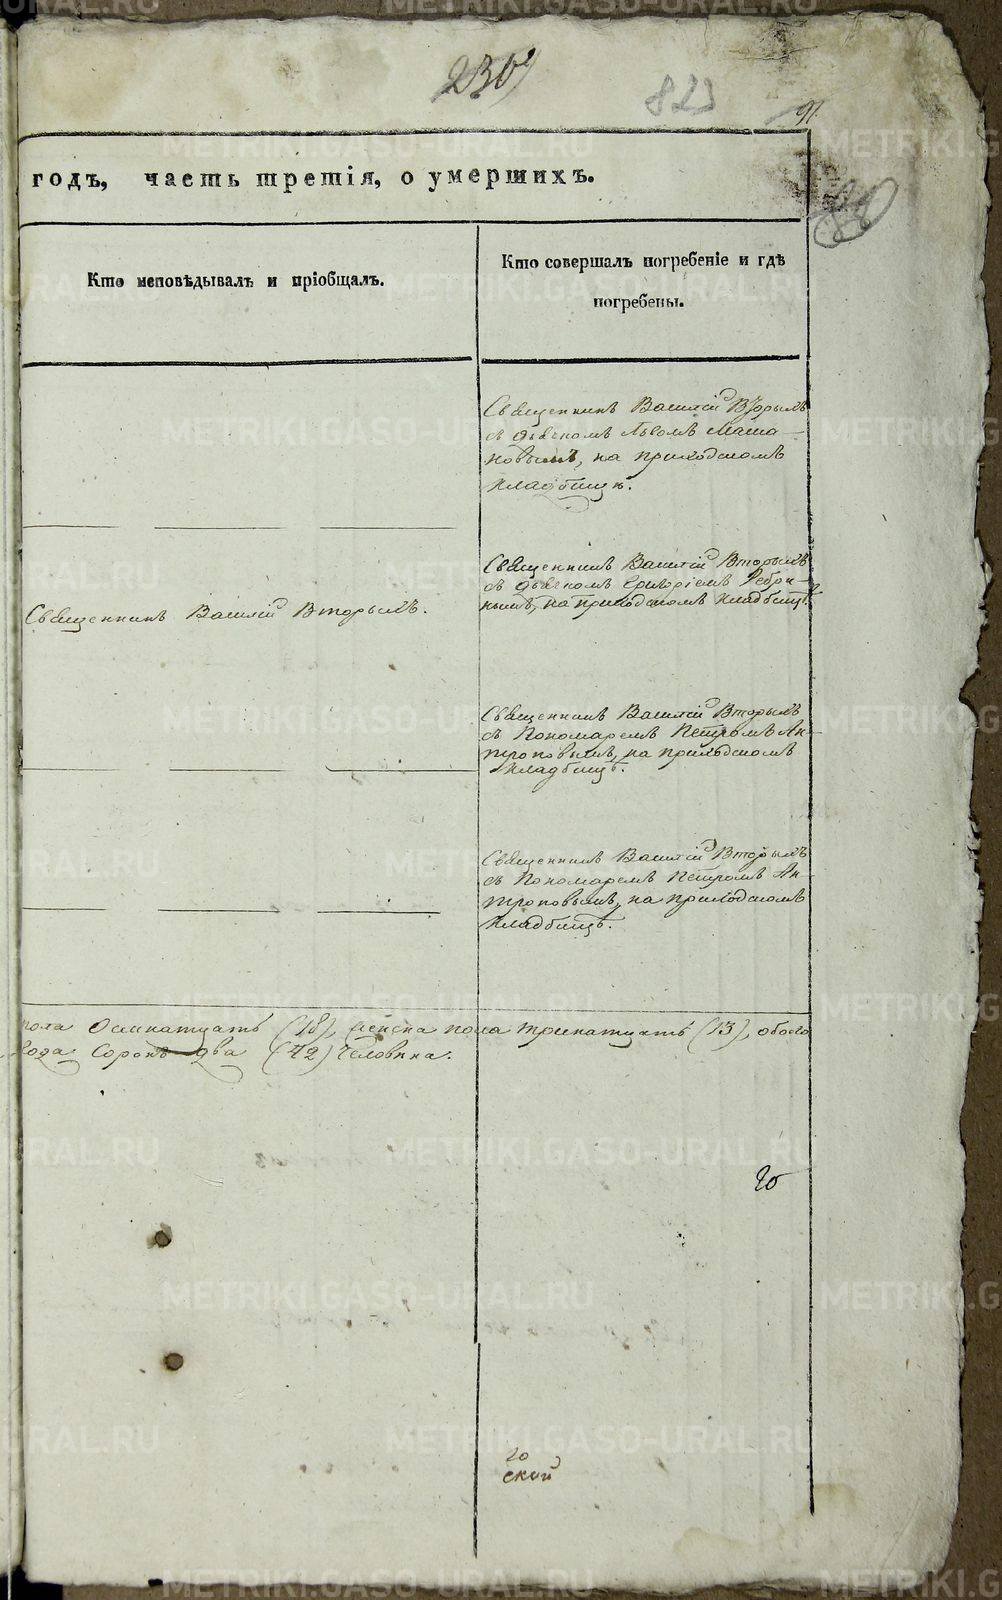 230
823
91.
88
годъ, часть третія, о умершихъ.
Кто исповѣдывалъ и пріобщалъ.
Кто совершалъ погребеніе и гдѣ
погребены.
Священникъ Василій Вторыхъ
съ дьякомъ Львомъ Маша-
новымъ, на приходскомъ
кладбищѣ.
Священникъ Василій Вторыхъ.
Священникъ Василій Вторыхъ
съ дьякомъ Григоріемъ Ребри-
нымъ, на приходскомъ кладбищѣ.
Священникъ Василій Вторыхъ
съ Пономаремъ Петромъ Ан-
троповымъ, на приходскомъ
кладбищѣ.
Священникъ Василій Вторыхъ
съ Пономаремъ Петромъ Ан-
троповымъ, на приходскомъ
кладбищѣ.
пола Осмнатцать (18), женска пола тринатцать (13), обоего
Сорокъ два (42) человѣка.
го
ской
METRIKI.GASO-URAL.RU